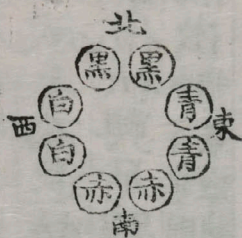 北
黒 黑
白 青
西 東
白 青
赤 赤
南